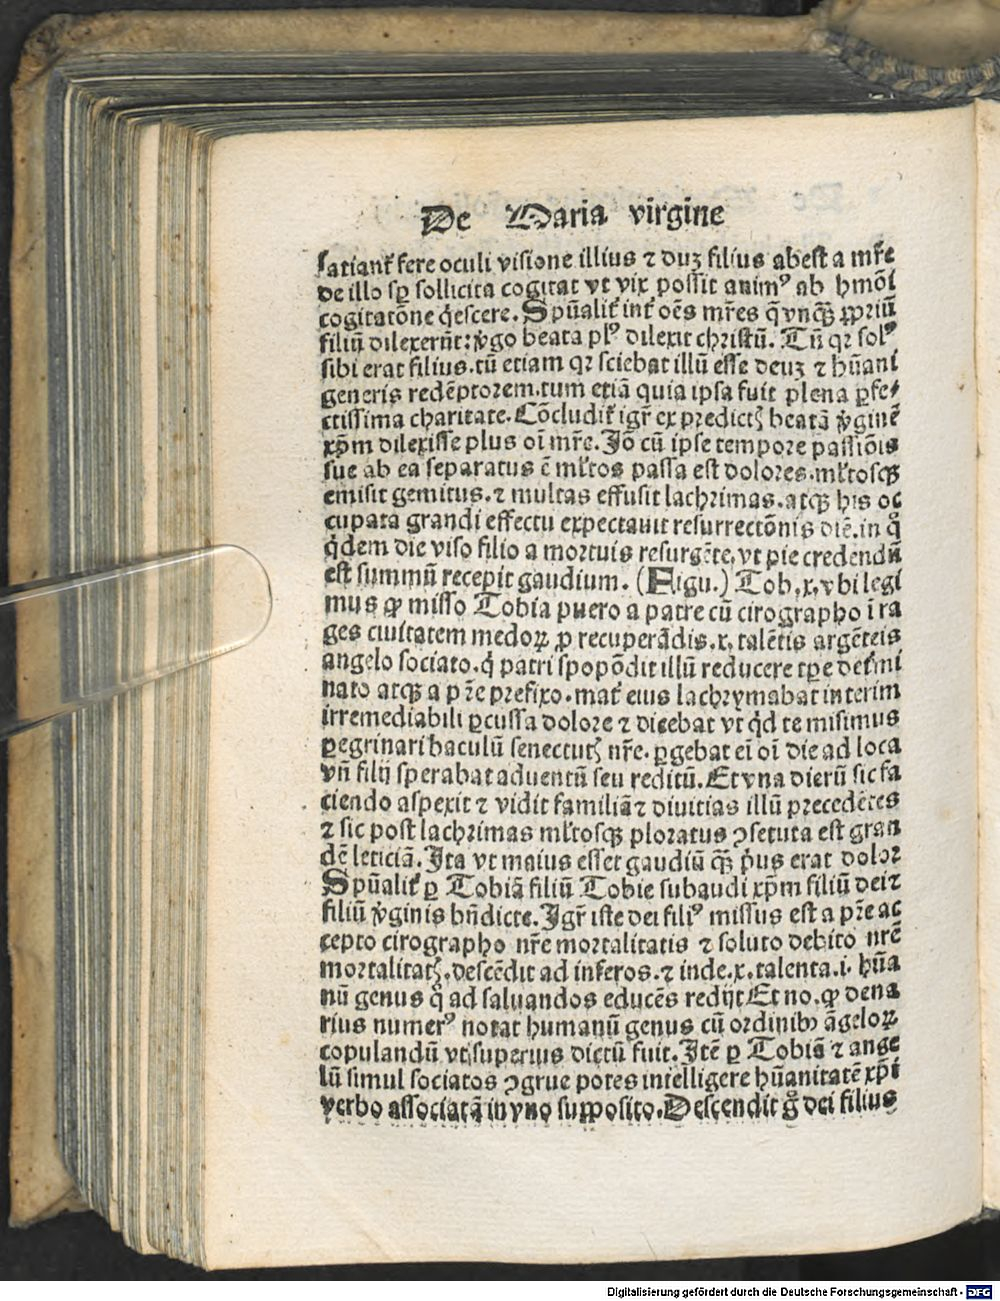 De Maria virgine
ſatiant᷑ fere oculi viſione illius ⁊ duꝫ filius abeſt a mr̄e
de illo ſꝑ ſollicita cogitat vt vix poſſit animꝰ ab hmōi
cogitatōne q̄eſcere. Spūalit᷑ int᷑ oēs mr̄es q̄ vnqꝫ ꝓpriū
filiū dilexerūt: ꝟgo beata plꝰ dilexit chriſtū. Tū qꝛ ſolꝰ
ſibi erat filius. tū etiam qꝛ ſciebat illū eſſe deuꝫ ⁊ hūani
generis redēptorem. tum etiā quia ipſa fuit plena ꝑfe⸗
ctiſſima charitate. Cōcludit᷑ igr̄ ex predictꝭ beatā ꝟginē
xp̄m dilexiſſe plus oī mr̄e. Jō cū ipſe tempore paſſiōis
ſue ab ea ſeparatus ē ml̄tos paſſa eſt dolores. ml̄toſqꝫ
emiſit gemitus. ⁊ multas effuſit lachrimas. atqꝫ his oc
cupata grandi effectu expectauit reſurrectōnis diē. in q̊
q̇dem die viſo filio a mortuis reſurgēte, vt pie credendū
eſt ſummū recepit gaudium. (Figu.) Tob. x. vbi legi
mus ꝙ miſſo Tobia puero a patre cū cirographo ī ra
ges ciuitatem medoꝝ ꝓ recuperādis. x. talētis argēteis
angelo ſociato. q̇ patri ſpopōdit illū reducere tꝑe det᷑mi
nato atqꝫ a pr̄e prefixo. mat᷑ eius lachrymabat interim
irremediabili ꝑcuſſa dolore ⁊ dicebat vt q̇d te miſimus
ꝑegrinari baculū ſenectutꝭ nr̄e. ꝑgebat eī oī die ad loca
vn̄ filij ſperabat aduentū ſeu reditū. Et vna dierū ſic fa
ciendo aſpexit ⁊ vidit familiā ⁊ diuitias illū precedētes
⁊ ſic poſt lachrimas ml̄toſqꝫ ploratus ꝯſecuta eſt gran
dē leticiā. Ita vt maius eſſet gaudiū qꝫ̄ pͥus erat dolor
Spūalit᷑ ꝑ Tobiā filiū Tobie ſubaudi xp̄m filiū dei ⁊
filiū ꝟginis bn̄dicte. Igr̄ iſte dei filiꝰ miſſus eſt a pr̄e ac
cepto cirographo nr̄e mortalitatis ⁊ ſoluto debito nr̄e
mortalitatꝭ, deſcēdit ad inferos. ⁊ inde. x. talenta. i. hūa
nū genus q̊ ad ſaluandos educēs redijt Et no. ꝙ dena
rius numerꝰ notat humanū genus cū ordinibꝰ āgeloꝝ
copulandū vt ſuperius dictū fuit. Itē ꝑ Tobiā ⁊ ange
lū ſimul ſociatos ꝯgrue potes intelligere hūanitatē xp̄i
verbo aſſociatā in vno ſuppoſito. Deſcendit g̊ dei filius
Digitalisierung gefördert durch die Deutsche Forschungsgemeinschaft - DFG